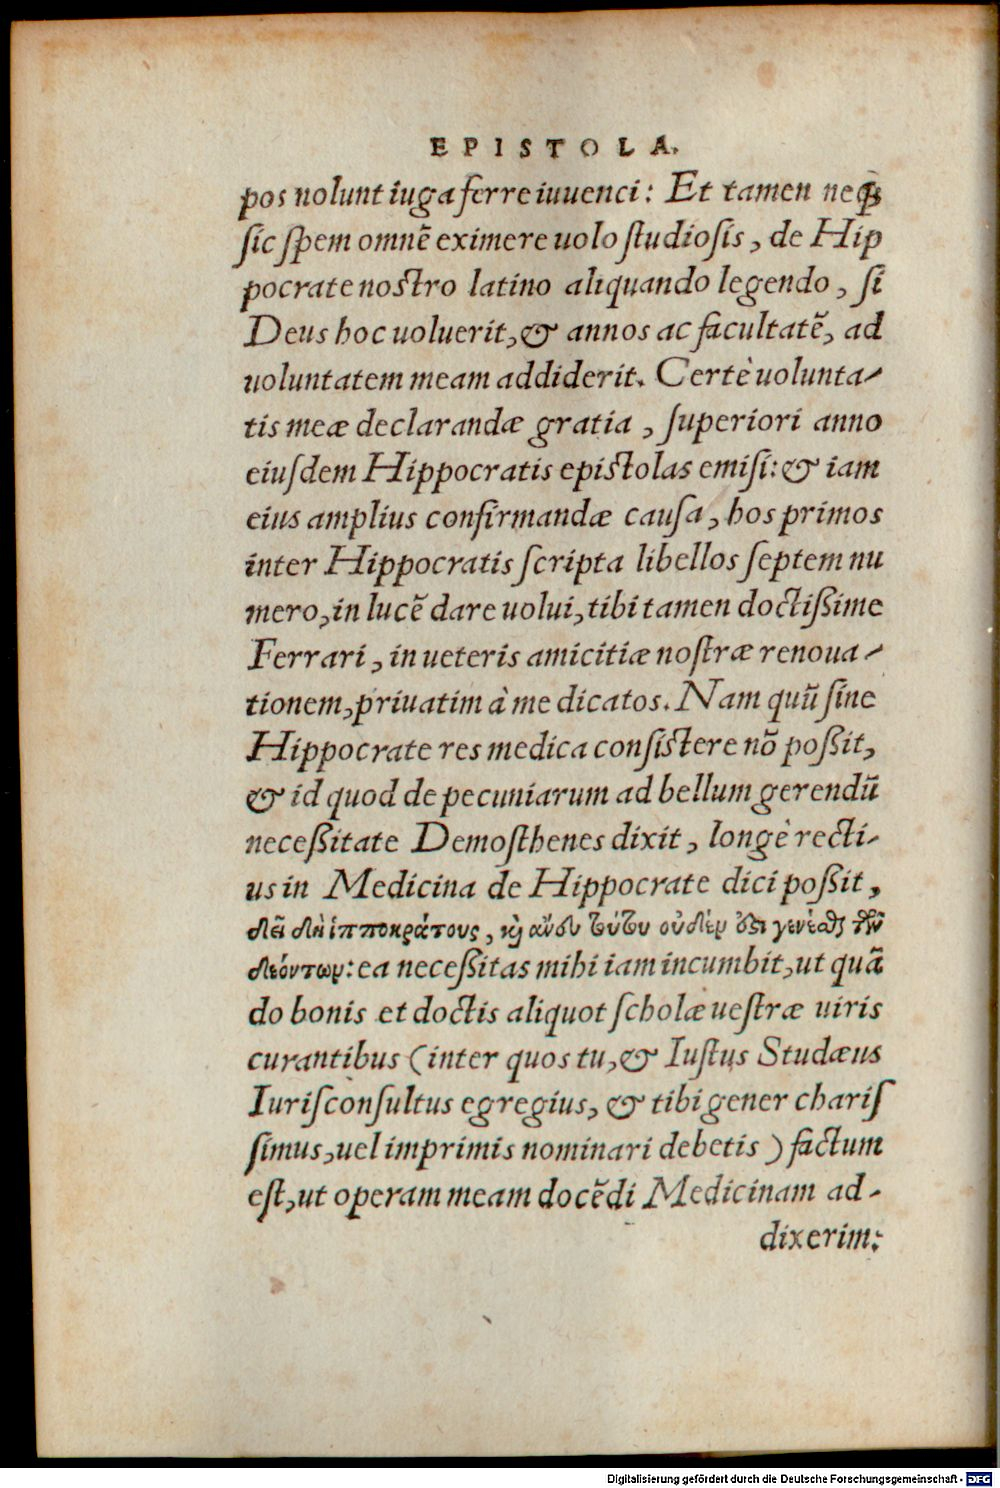 EPISTOLA.
pos nolunt iuga ferre iuuenci: Et tamen neqꝫ
sic spem omnẽ eximere uolo studiosis, de Hip
pocrate nostro latino aliquando legendo, si
Deus hoc uoluerit, & annos ac facultatẽ, ad
uoluntatem meam addiderit. Certè uolunta-
tis meæ declarandæ gratia, superiori anno
eiusdem Hippocratis epistolas emisi: & iam
eius amplius confirmandæ causa, hos primos
inter Hippocratis scripta libellos septem nu
mero, in lucẽ dare uolui, tibi tamen doctißime
Ferrari, in ueteris amicitiæ nostræ renoua-
tionem, priuatim à me dicatos. Nam quũ sine
Hippocrate res medica consistere nõ poßit,
& id quod de pecuniarum ad bellum gerendũ
neceßitate Demosthenes dixit, longè recti-
us in Medicina de Hippocrate dici poßit,
δεῖ δὴ ἱπποκράτους, καὶ ἄνευ τούτου οὐδὲν ὅτι γενέσθαι τῶν
δεόντων: ea neceßitas mihi iam incumbit, ut quã
do bonis et doctis aliquot scholæ uestræ uiris
curantibus (inter quos tu, & Iustus Studæus
Iurisconsultus egregius, & tibi gener charis
simus, uel imprimis nominari debetis) factum
est, ut operam meam docẽdi Medicinam ad-
dixerim:
Digitalisierung gefördert durch die Deutsche Forschungsgemeinschaft - DFG